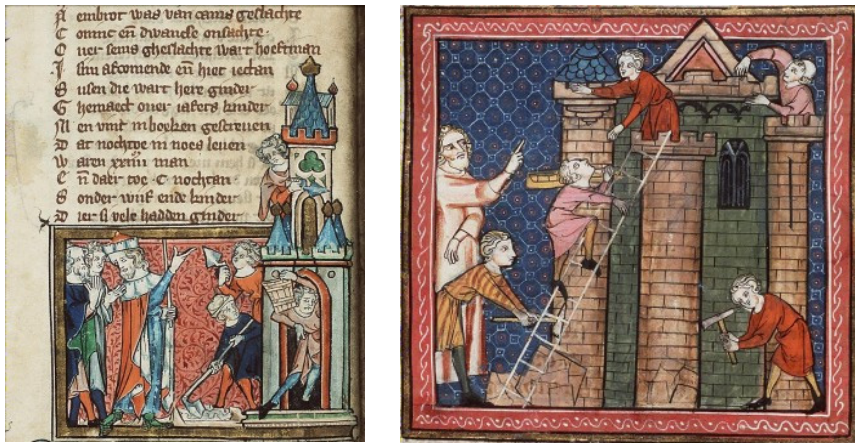 N embrot was van cams geslachte
C omnc en̄ dwancse onsachte.
O uer sems gheslachte wart hoeftman
I affomende en̄ hiet iectan
S usen die wart here ginder
G hemaect ouer iafets kinder
M en vint in boeken gescreuen
D at nochtoe in noes leuen
W aren xxiiii man
E n̄ daer toe .C. nochtan
S onder wijf ende kinder
D ier si vele hadden ginder